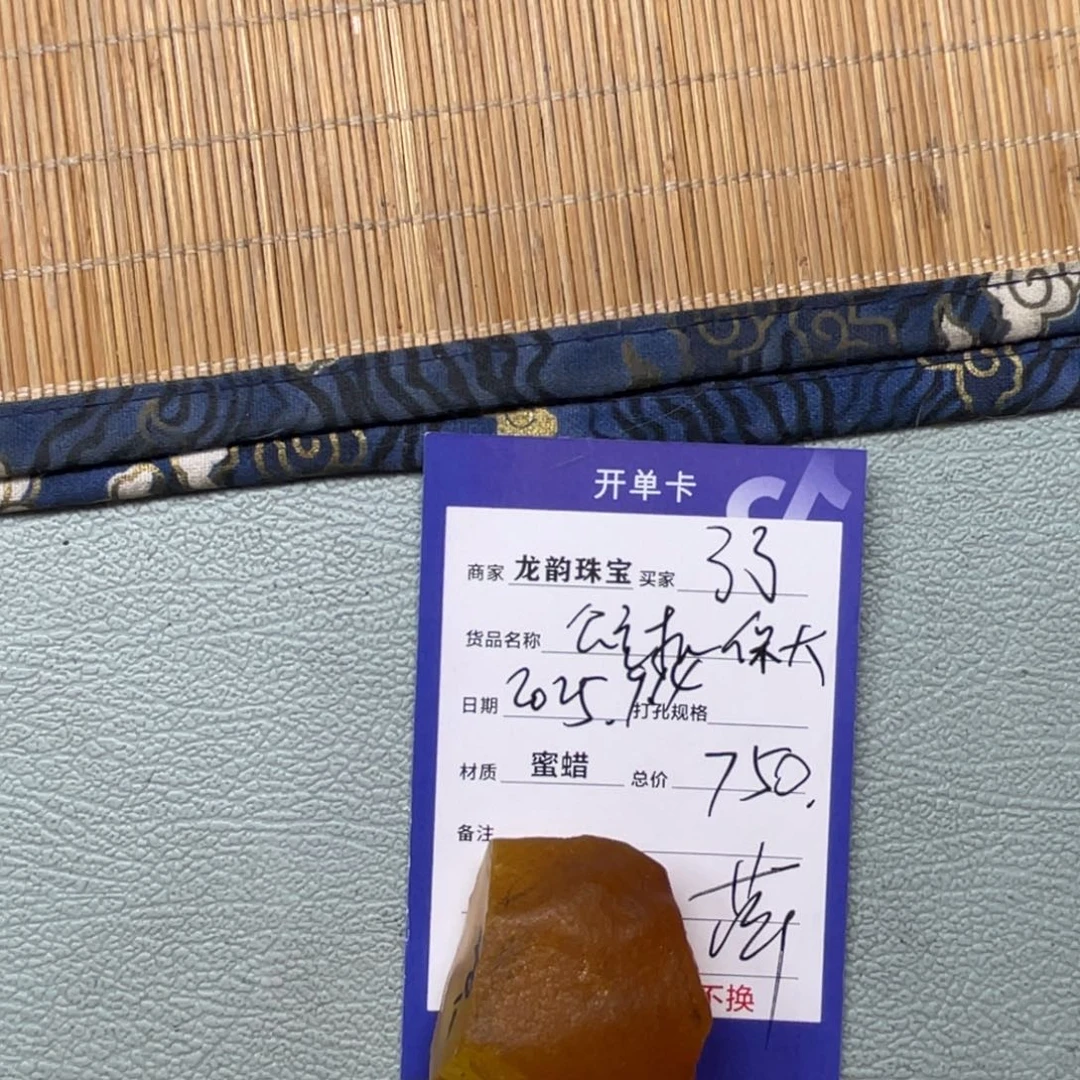 开单卡
商家 龙韵珠宝 买家 弓弓
货品名称 保大
日期 2025.9.14 打孔规格
材质 蜜蜡 总价 750.
备注
不换